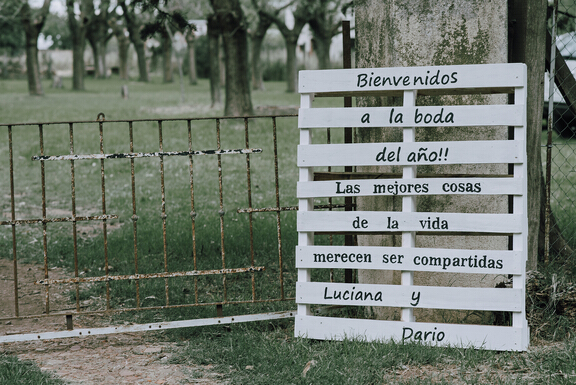 Bienvenidos
a la boda
del año!!
Las mejores cosas
de la vida
merecen ser compartidas
Luciana y
Dario